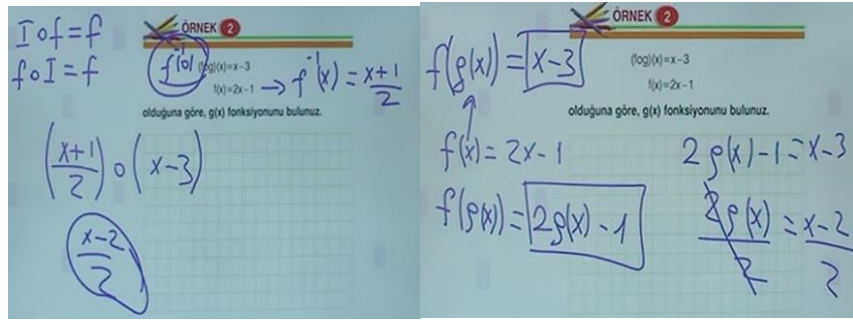 I o f = f
f o I = f
ÖRNEK 2
f⁻¹o
(fog)(x)=x-3
f(x)=2x-1 → f⁻¹(x) = x+1/2
olduğuna göre, g(x) fonksiyonunu bulunuz.
(x+1/2) o (x-3)
x-2/2
ÖRNEK 2
f(g(x)) = x-3
(fog)(x)=x-3
f(x)=2x-1
olduğuna göre, g(x) fonksiyonunu bulunuz.
f(x) = 2x-1
2g(x)-1=x-3
f(g(x)) = 2g(x)-1
2g(x)/2 = x-2/2